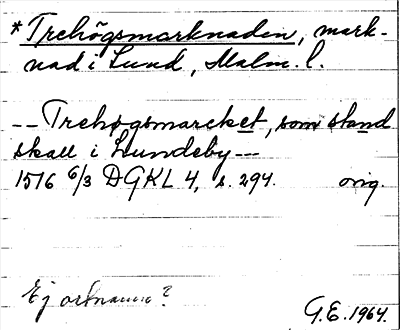 *Trehögsmarknaden, mark-
nad i Lund, Malm. l.
-- Trehogsmarcket, som stand
skall i Lundeby --
1516 6/3 DGKL 4, s. 294. orig.
Ej ortnamn?
G.E. 1964.